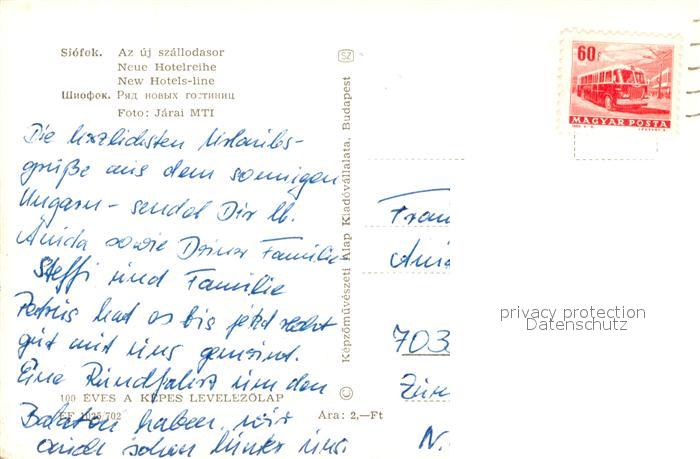 Siófok. Az új szállodasor
Neue Hotelreihe
New Hotels-line
Шиофок. Ряд новых гостиниц
Foto: Járai MTI
Die herzlichsten Urlaubs-
grüße aus dem sonnigen
Ungarn - sendet Dir lb.
Anida sowie Deiner Familie
Steffi und Familie
Petrus hat es bis jetzt recht
gut mit uns gemeint.
Eine Rundfahrt um den
100 ÉVES A KÉPES LEVELEZŐLAP
Balaton haben wir
auch schon hinter uns.
702
Ára: 2,—Ft
SZ
Képzőművészeti Alap Kiadóvállalata, Budapest
©
60f
MAGYAR POSTA
703
privacy protection
Datenschutz
N.